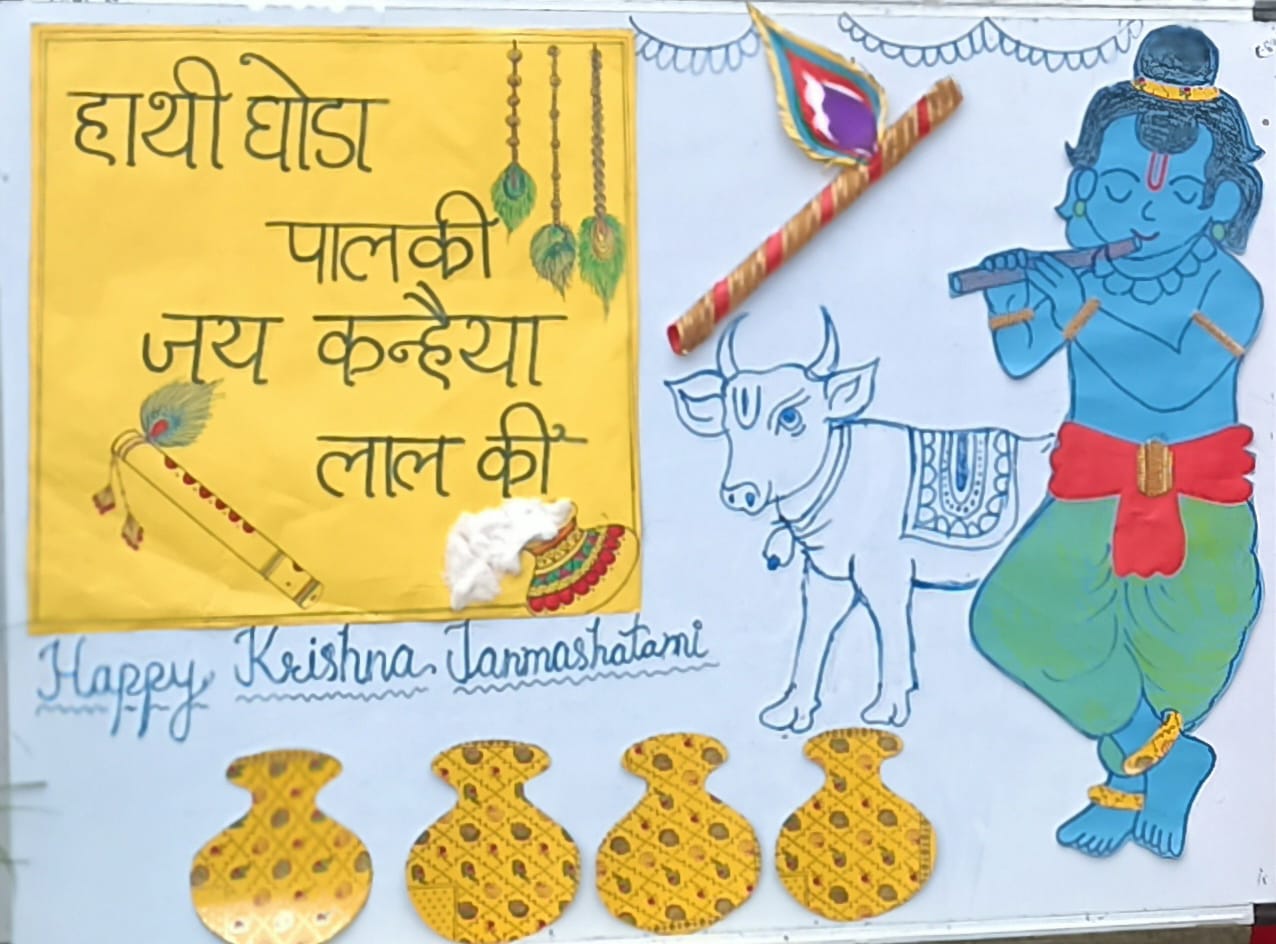 हाथी घोडा
पालकी
जय कन्हैया
लाल की
Happy Krishna Janmashatami